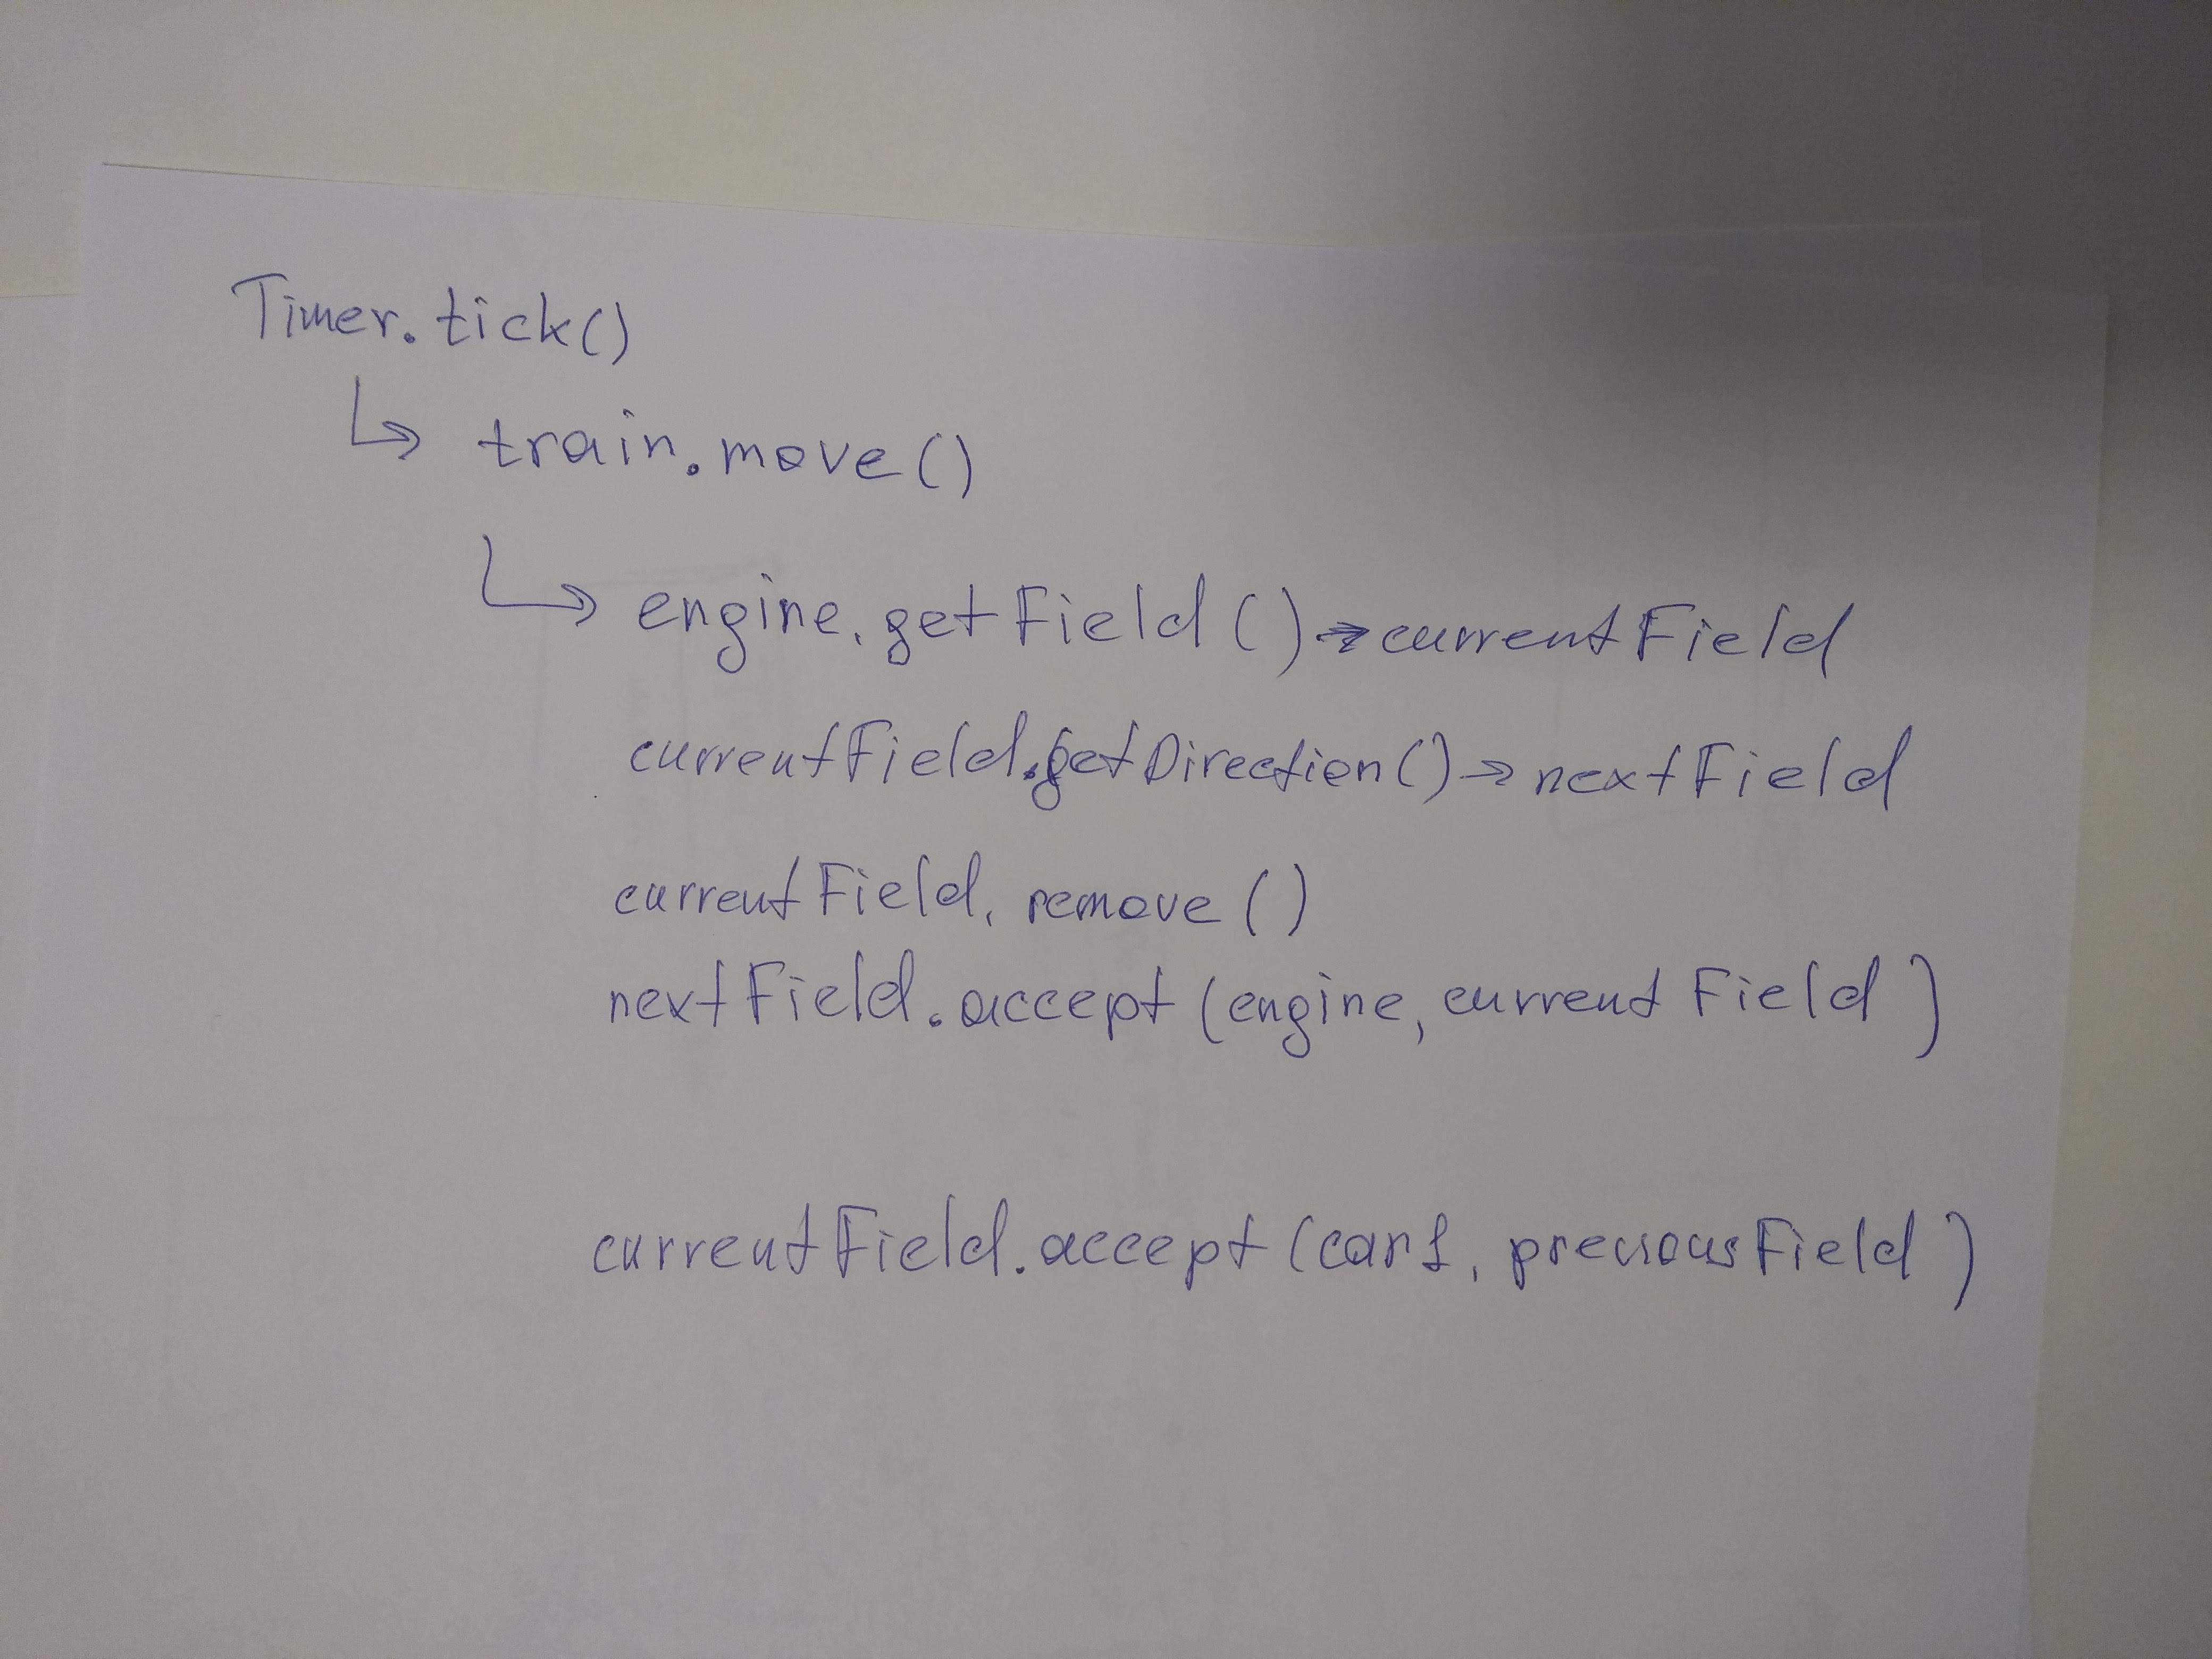 Timer.tick()
↳ train.move()
↳ engine.getField() → currentField
currentField.getDirection() → nextField
currentField.remove()
nextField.accept(engine, currentField)
currentField.accept(car1, previousField)